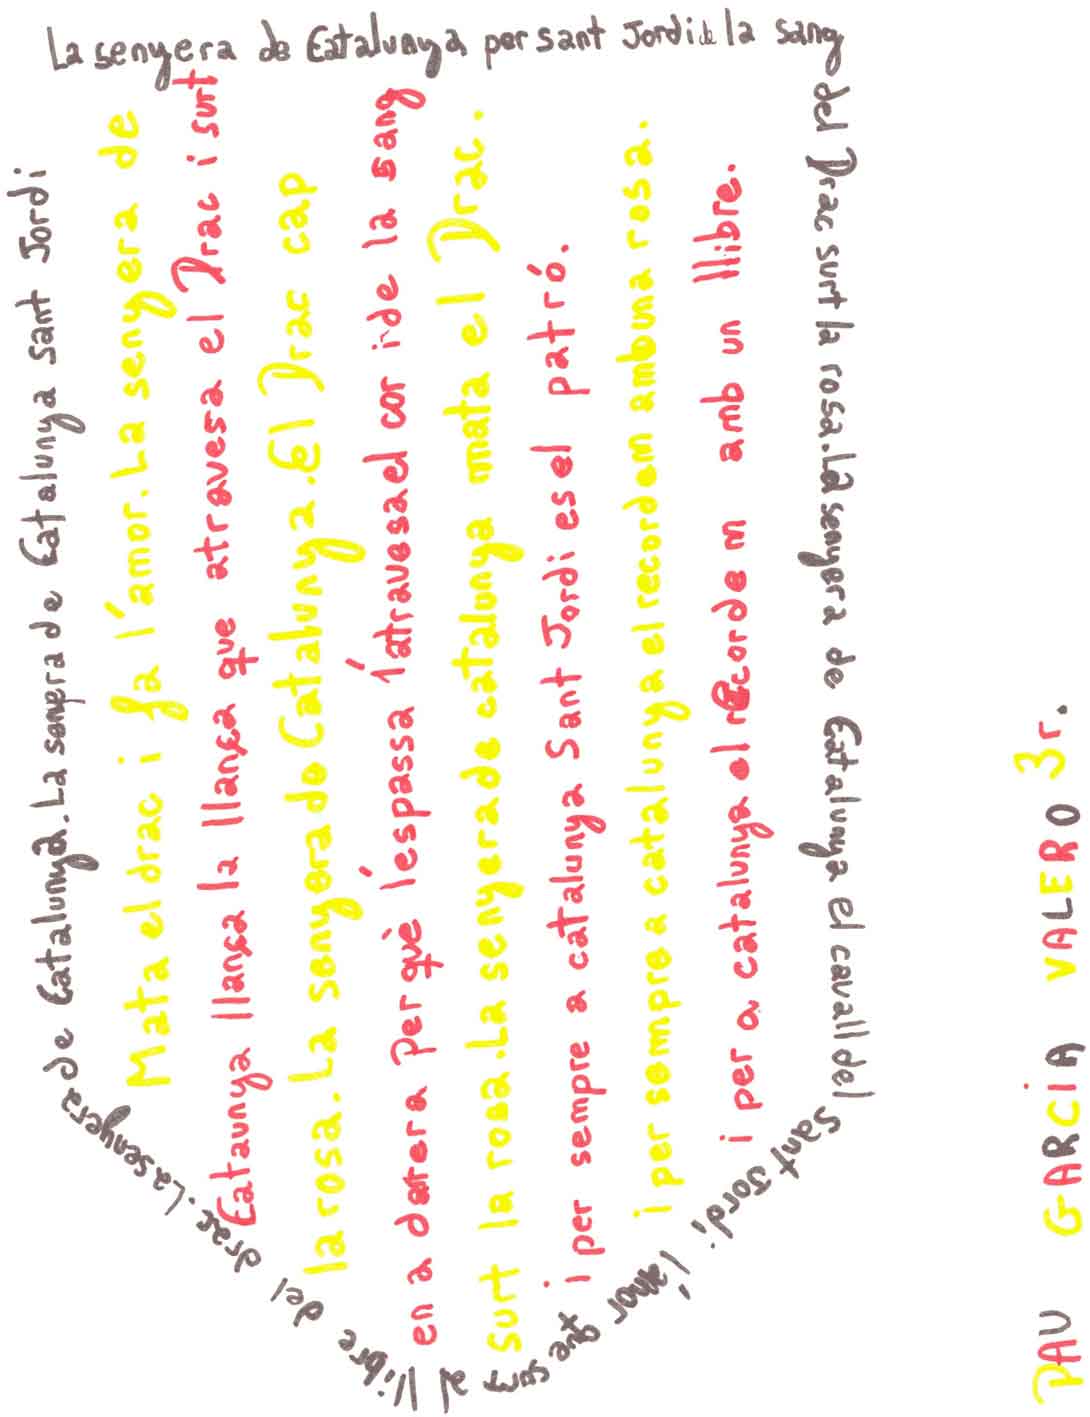 La senyera de Catalunya per sant Jordi de la sang
del Drac surt la rosa. La senyera de Catalunya el cavall del
Sant Jordi l'amor que surt
al llibre del drac. La senyera
de Catalunya. La senyera de Catalunya sant Jordi
Mata el drac i fa l'amor. La senyera de
Cataunya llança la llança que atravesa el Drac i surt
la rosa. La senyera de Catalunya. El Drac cap
en a darera per què l'espassa l'atravesa el cor i de la sang
surt la rosa. La senyera de catalunya mata el Drac.
i per sempre a catalunya Sant Jordi es el patró.
i per sempre a catalunya el recordem amb una rosa.
i per a catalunya el recordem amb un llibre.
PAU GARCIA VALERO 3r.